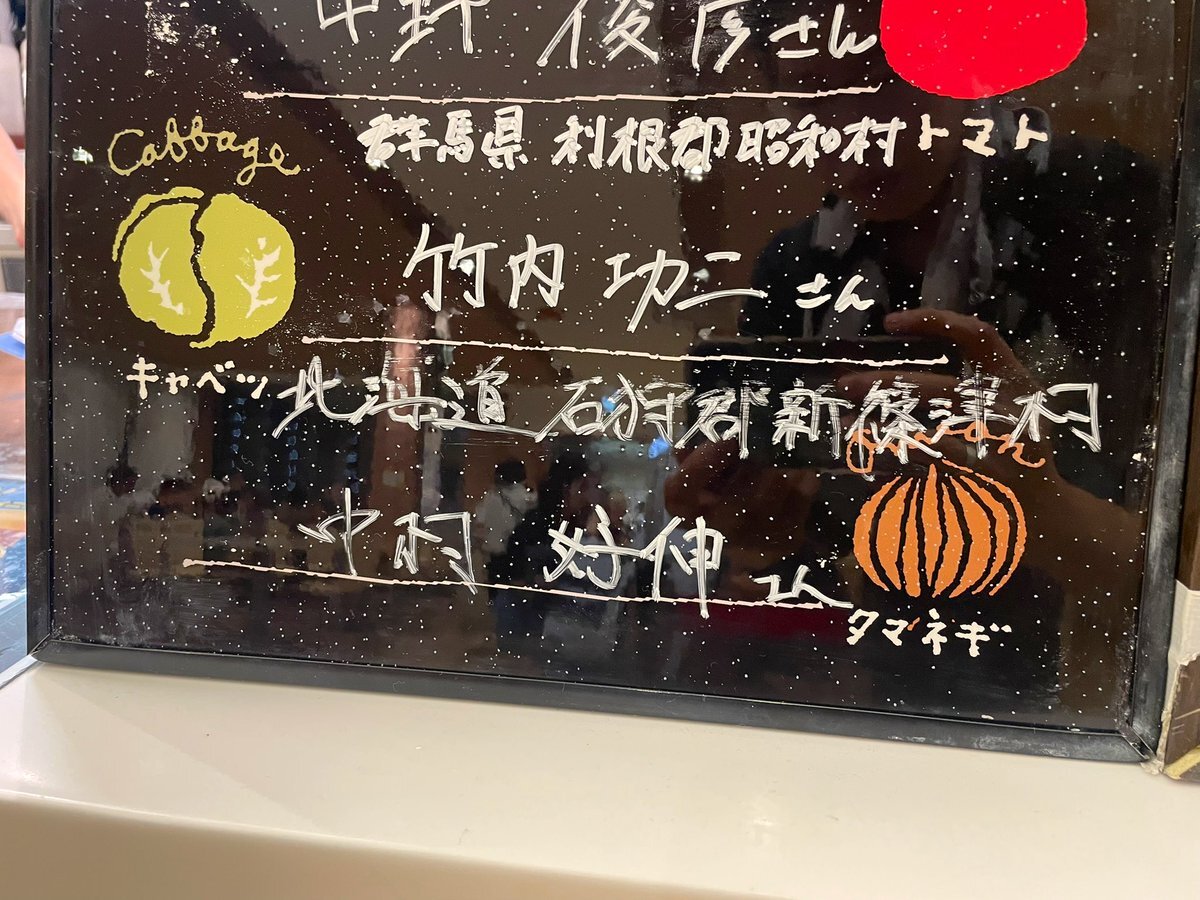 中野 俊彦さん
Cabbage
群馬県 利根郡昭和村
トマト
竹内 功二さん
キャベツ
北海道 石狩郡新篠津村
中村 好伸さん
タマネギ